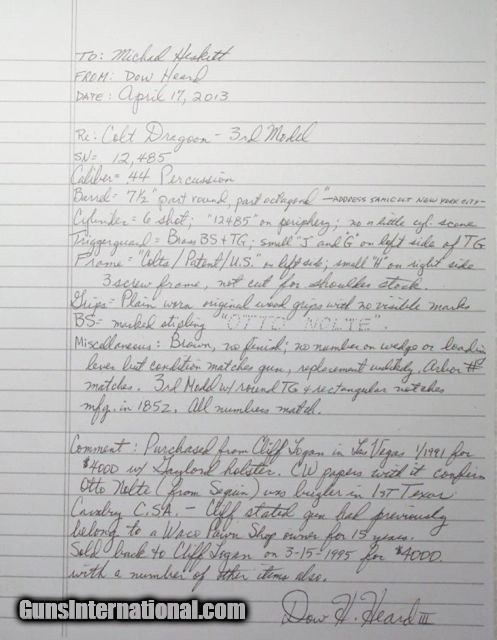 TO: Michael Heskitt
FROM: Dow Heard
DATE: April 17, 2013
Re: Colt Dragoon - 3rd Model
SN= 12,485
Caliber= .44 Percussion
Barrel= 7½" part round, part octagonal "-ADDRESS SAMLCOLT NEW YORK CITY-
Cylinder= 6 shot; "12485" on periphery; no n little cyl. scene
Triggerguard= Brass BS+TG; small "J" and "G" on left side of TG
Frame= "Colts/Patent/U.S." on left side; small "H" on right side
3 screw frame, not cut for shoulder stock.
Grips= Plain worn original wood grips with no visible marks
BS= marked stipling "OTTO NOLTE".
Miscellaneous: Brown, no finish; no number on wedge or loading
lever but condition matches gun, replacement unlikely. Arbor #
matches. 3rd Model w/ round TG & rectangular notches
mfg. in 1852. All numbers match.
Comment: Purchased from Cliff Logan in Las Vegas 1/1991 for
$4000 w/ Gaylord holster. CW papers with it confirm
Otto Nolte (from Seguin) was bugler in 1ST Texas
Cavalry C.S.A. - Cliff stated gun had previously
belong to a Waco Pawn Shop owner for 15 years.
Sold back to Cliff Logan on 3-15-1995 for $4000.
with a number of other items also.
Dow H. Heard III
GunsInternational.com